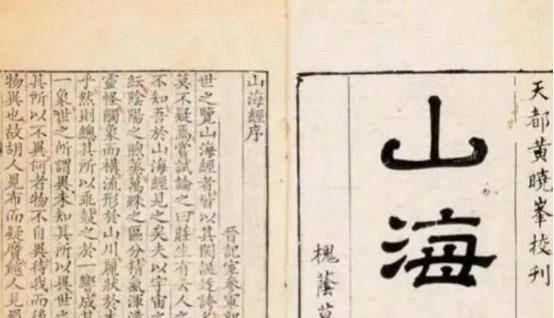 天都黃曉峯校刊
山海
槐蔭
山海經序
晉記室參軍
世之覽山海經者皆以其閎誕迂誇
莫不疑焉嘗試論之曰莊生有云人之
不知吾於山海經見之矣夫以宇宙之
紜陰陽之煦蒸萬殊之區分精氣渾淆
靈怪觸象而構流形於山川麗狀於木
乎然則總其所以乖鼓之於一響成其
一象世之所謂異未知其所以異世之
其所以不異何者物不自異待我而後
物異也故胡人見布而疑黂越人見